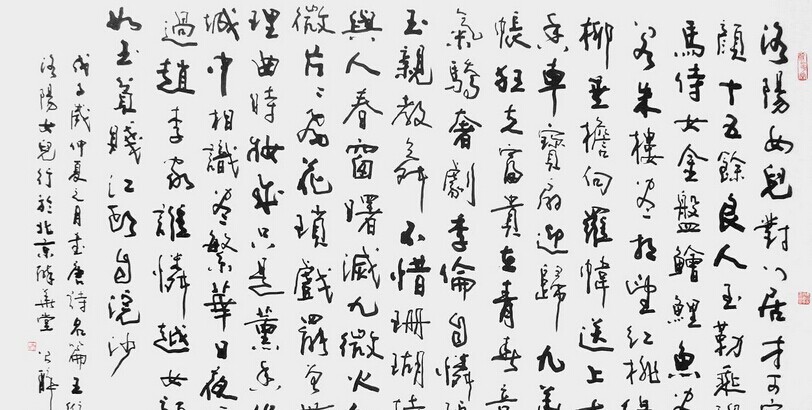 洛陽女兒對門居才可容
顏十五餘良人玉勒乘驄
馬侍女金盤鱠鯉魚畫
閣朱樓盡相望紅桃綠
柳垂檐向羅幃送上七
香車寶扇迎歸九華
帳狂夫富貴在青春意
氣驕奢劇季倫自憐碧
玉親教舞不惜珊瑚持
與人春窗曙滅九微火九
微片々飛花瑣戲罷曾無
理曲時妝成只是薰香坐
城中相識盡繁華日夜經
過趙李家誰憐越女顏
如玉貧賤江頭自浣沙
戊子歲仲夏之月書唐詩名篇王維
洛陽女兒行於北京醉華堂